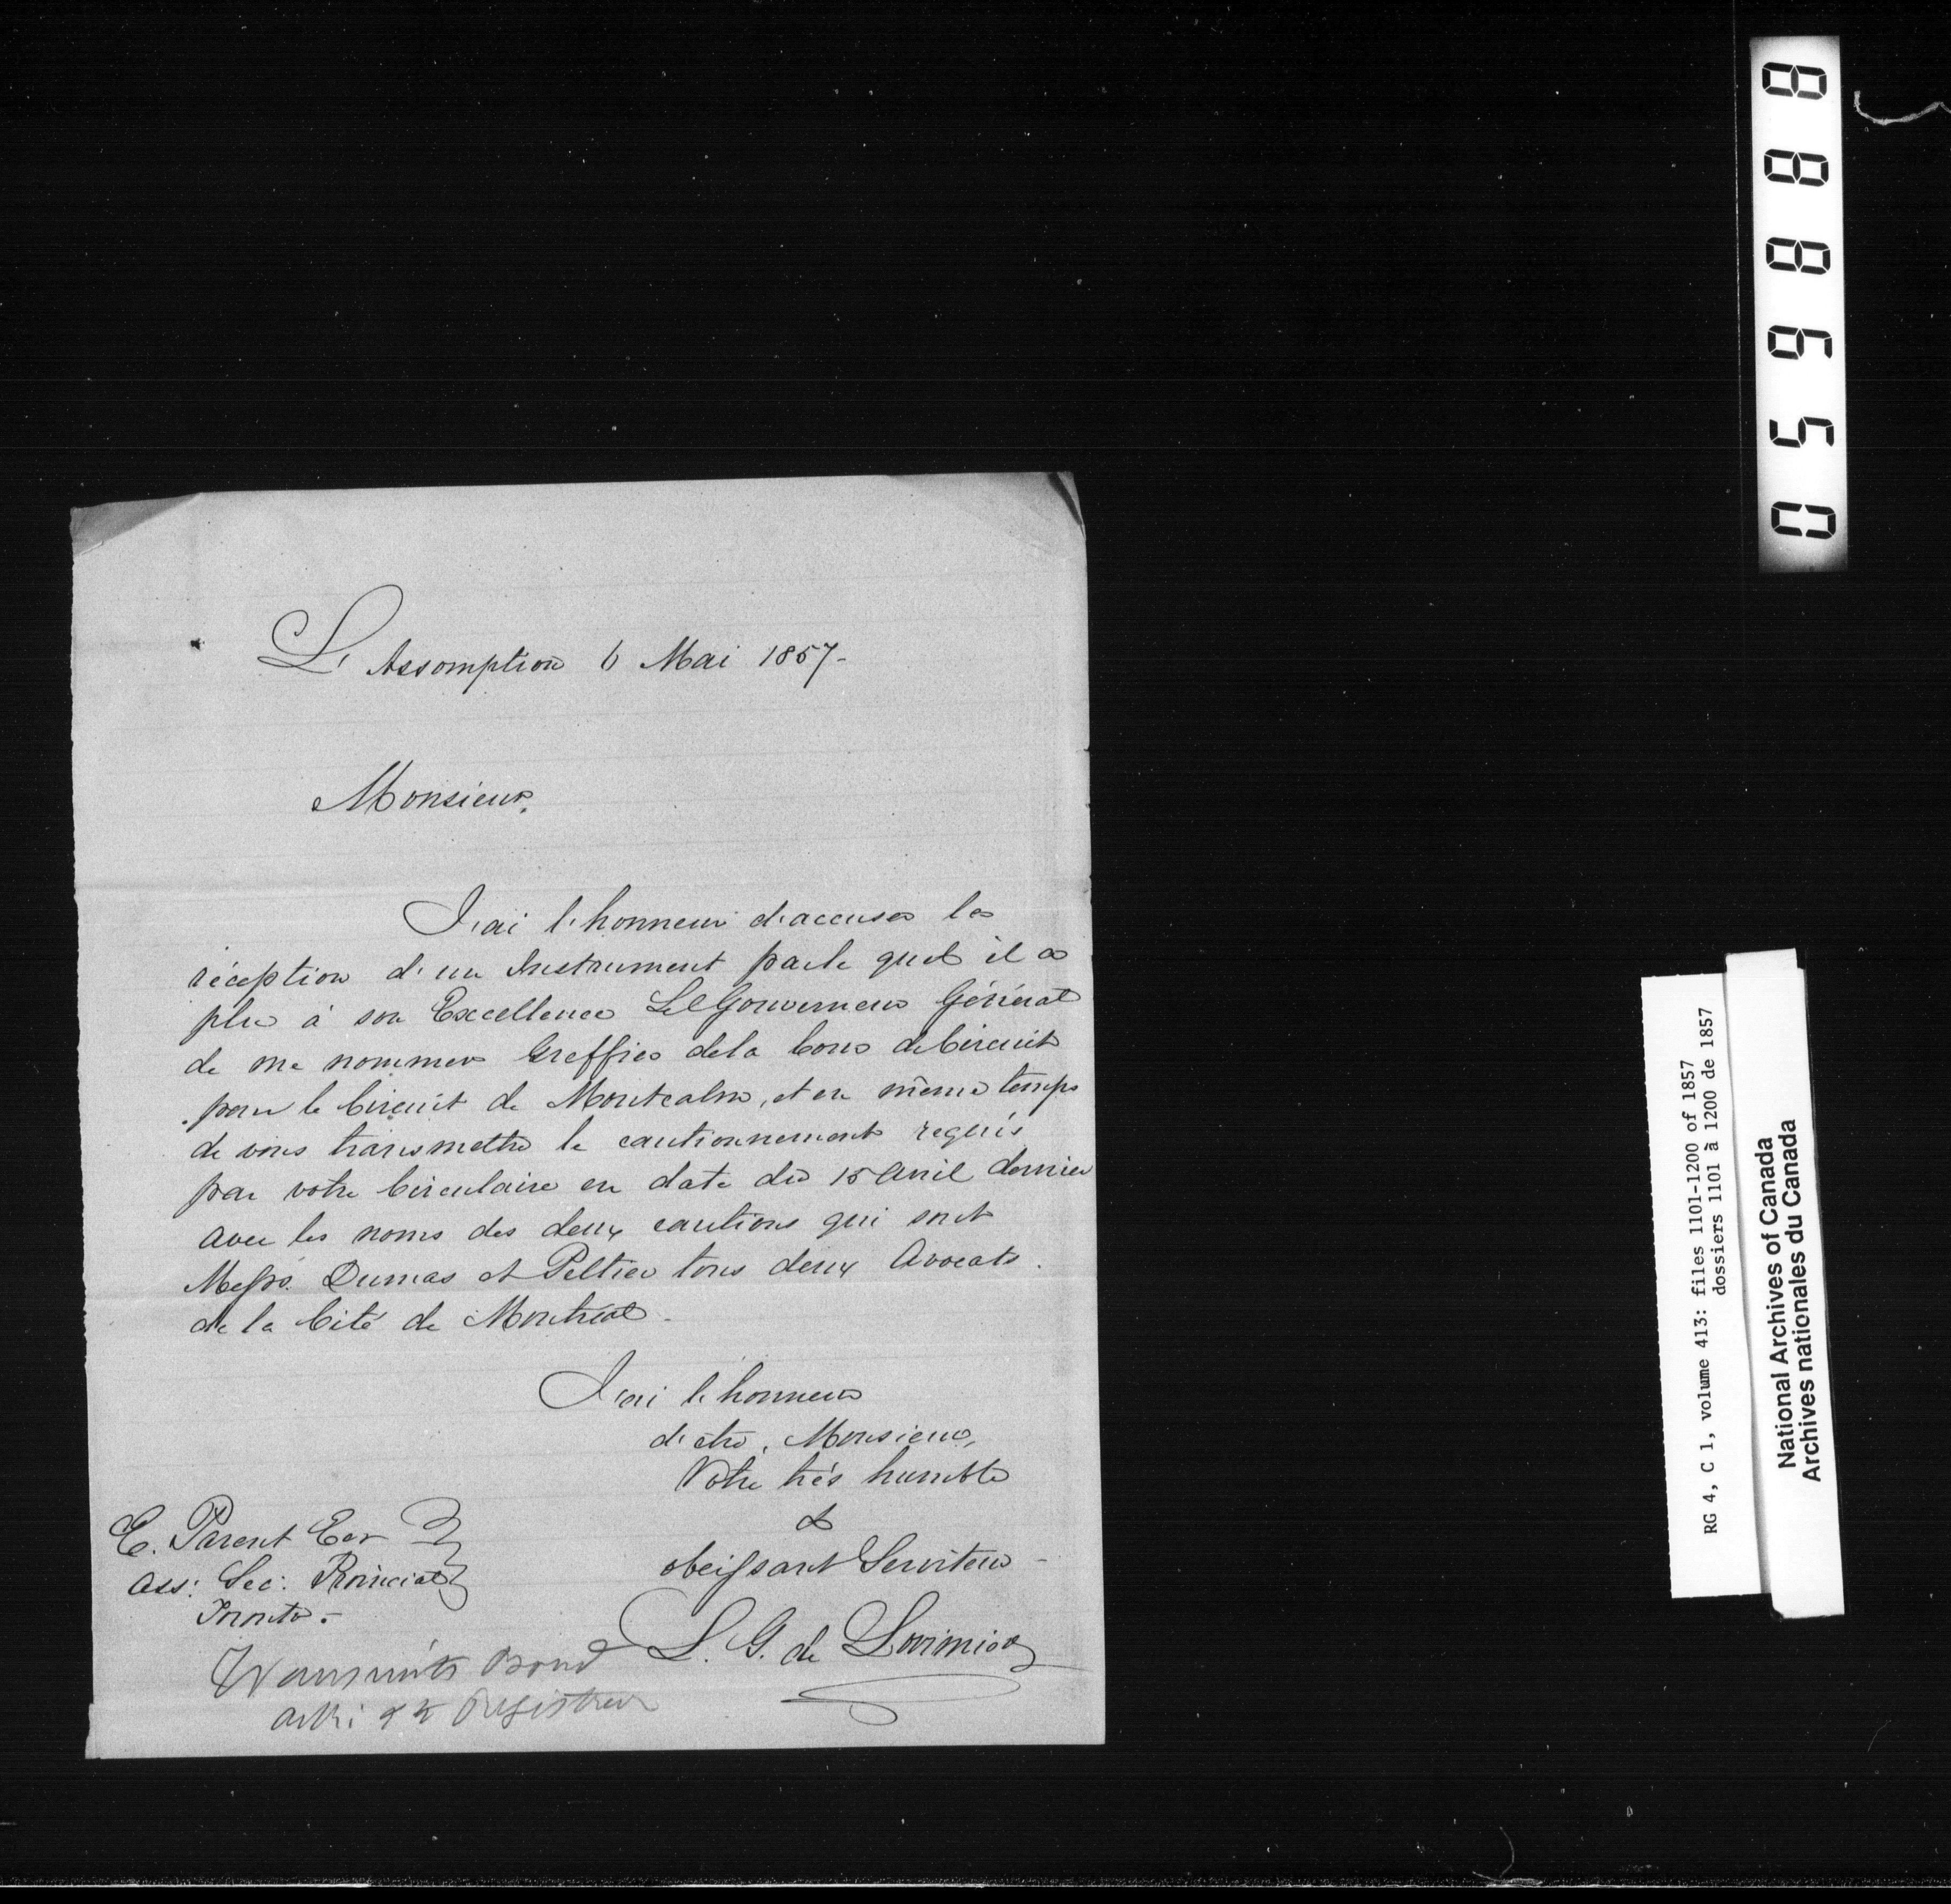 L'Assomption 6 Mai 1857-
Monsieur,
J'ai l'honneur d'accuser la
réception d'un Instrument par le quel il a
plu à son Excellence Le Gouverneur Général
de me nommer Greffier de la Cour de Circuit
pour le Circuit de Montcalm, et en même temps
de vous transmettre le cautionnement requis
par votre Circulaire en date du 15 Avril dernier
avec les noms des deux cautions qui sont
Messrs. Dumas et Peltier tous deux Avocats
de la Cité de Montréal.
J'ai l'honneur
d'etre, Monsieur,
Votre très humble
&
obeissant Serviteur
L. G. de Lorimier
E. Parent Ecr
Ass: Sec: Provincial
Toronto.-
Transmits Bond
as Registrar
RG 4, C 1, volume 413: files 1101-1200 of 1857
dossiers 1101 à 1200 de 1857
National Archives of Canada
Archives nationales du Canada
0 5 9 8 8 8